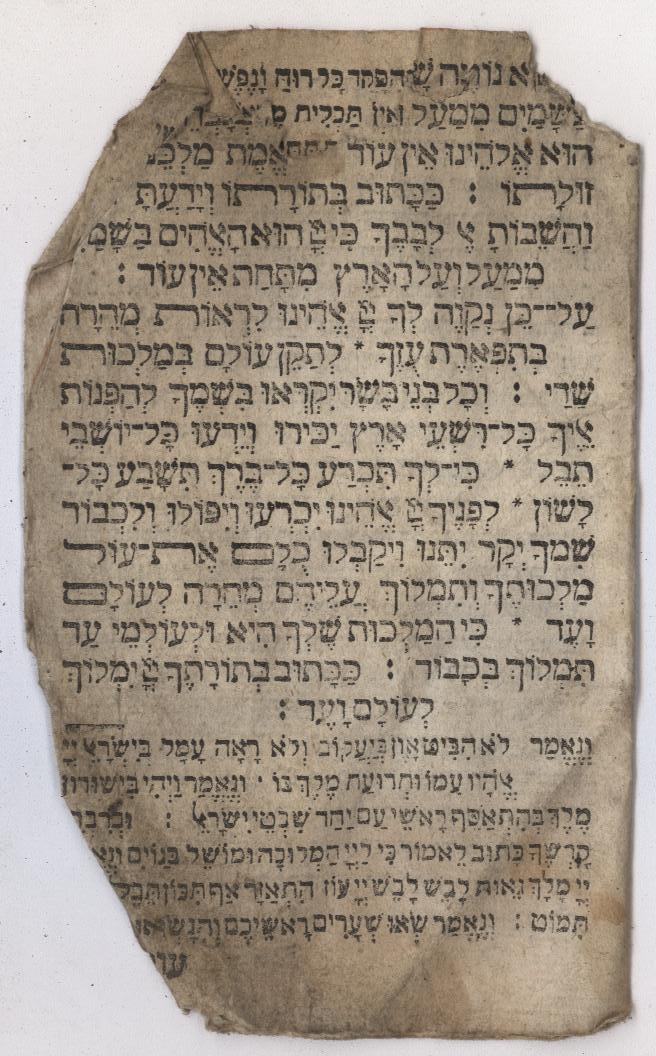 א נוטה ש הפסקד כל רוח ונפש
בשמים ממעל אין תכלית
הוא אלהינו אין עוד אמת מלכנ
זולתו : ככתוב בתורתו וידעת
והשבות אל לבבך כי יי הוא האלהים בשמ
ממעל ועל הארץ מתחת אין עוד :
על־כן נקוה לך יי אלהינו לראות מהרה
בתפארת עוזך * לתקן עולם במלכות
שדי : וכל בני בשר יקראו בשמך להפנות
אליך כל־רשעי ארץ יכירו וידעו כל־יושבי
תבל * כי־לך תכרע כל־ברך תשבע כל־
לשון * לפניך יי אלהינו יכרעו ויפולו ולכבוד
שמך יקר יתנו ויקבלו כולם את־עול
מלכותך ותמלוך עליהם מהרה לעולם
ועד * כי המלכות שלך היא ולעולמי עד
תמלוך בכבוד : ככתוב בתורתך יי ימלוך
לעולם ועד :
ונאמר לא הביט און ביעקוב ולא ראה עמל בישראל יי
אלהיו עמו ותרועת מלך בו · ונאמר ויהי בישורון
מלך בהתאסף ראשי עם יחד שבטי ישראל : ובדברי
קדשך כתוב לאמור כי ליי המלוכה ומושל בגוים ונא
יי מלך גאות לבש לבש יי עוז התאזר אף תכון תבל
תמוט : ונאמר שאו שערים ראשיכם והנשאו